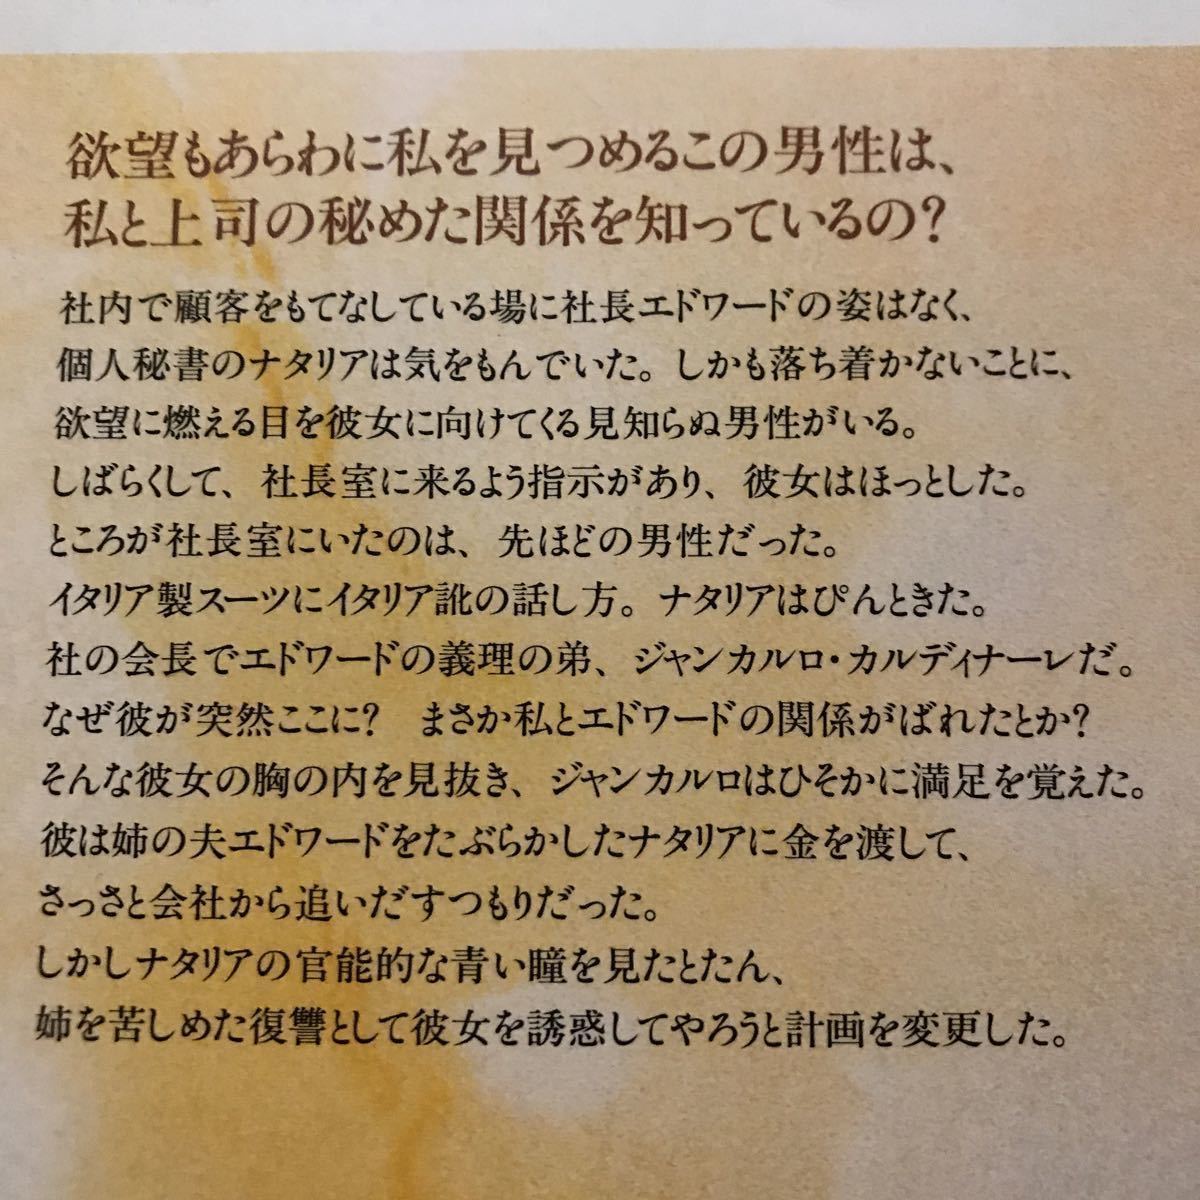 欲望もあらわに私を見つめるこの男性は、
私と上司の秘めた関係を知っているの？
社内で顧客をもてなしている場に社長エドワードの姿はなく、
個人秘書のナタリアは気をもんでいた。しかも落ち着かないことに、
欲望に燃える目を彼女に向けてくる見知らぬ男性がいる。
しばらくして、社長室に来るよう指示があり、彼女はほっとした。
ところが社長室にいたのは、先ほどの男性だった。
イタリア製スーツにイタリア訛の話し方。ナタリアはぴんときた。
社の会長でエドワードの義理の弟、ジャンカルロ・カルディナーレだ。
なぜ彼が突然ここに？　まさか私とエドワードの関係がばれたとか？
そんな彼女の胸の内を見抜き、ジャンカルロはひそかに満足を覚えた。
彼は姉の夫エドワードをたぶらかしたナタリアに金を渡して、
さっさと会社から追いだすつもりだった。
しかしナタリアの官能的な青い瞳を見たとたん、
姉を苦しめた復讐として彼女を誘惑してやろうと計画を変更した。